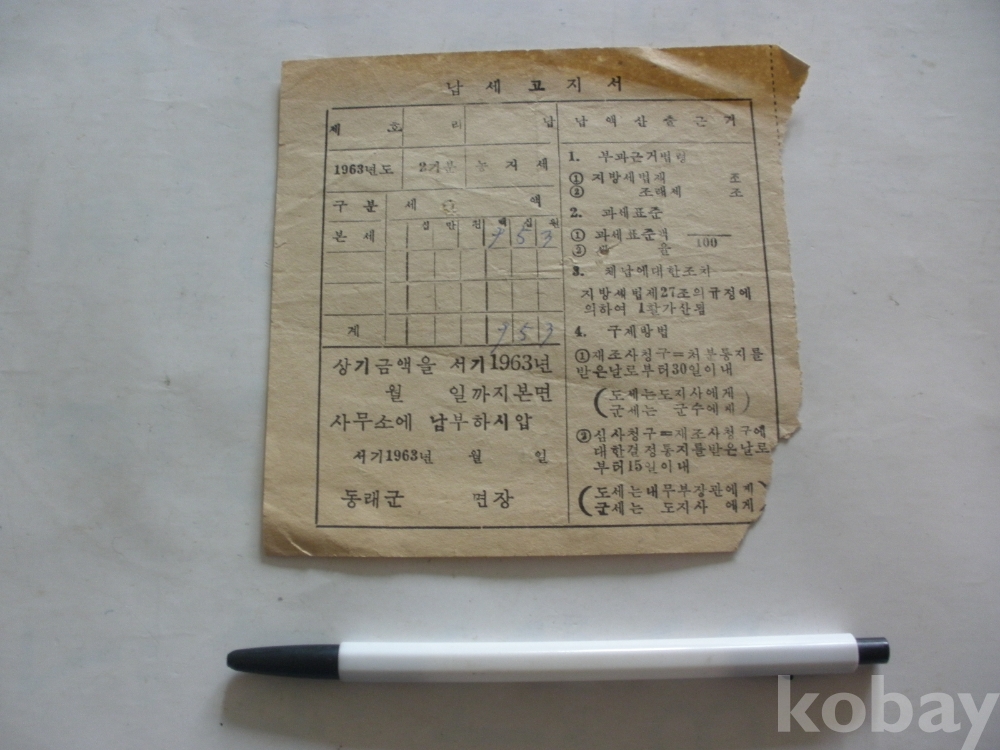 납 세 고 지 서
제 호 리 납
1963년도 2기분 농 지 세
구 분 세 액
십 만 천 백 십 원
본 세 953
계 953
상기금액을 서기1963년
월 일까지본면
사무소에 납부하시압
서기1963년 월 일
동래군 면장
납 액 산 출 근 거
1. 부과근거법령
① 지방세법제 조
② 조례제 조
2. 과세표준
① 과세표준액
② 률 율 100
3. 체납에대한조치
지방세법제27조의규정에
의하여 1할가산됨
4. 구제방법
①재조사청구=처분통지를
받은날로부터30일이내
(도세는도지사에게
군세는 군수에게)
②심사청구=재조사청구에
대한결정통지를받은날로
부터15일이내
(도세는내무부장관에게
군세는 도지사 에게)
kobay